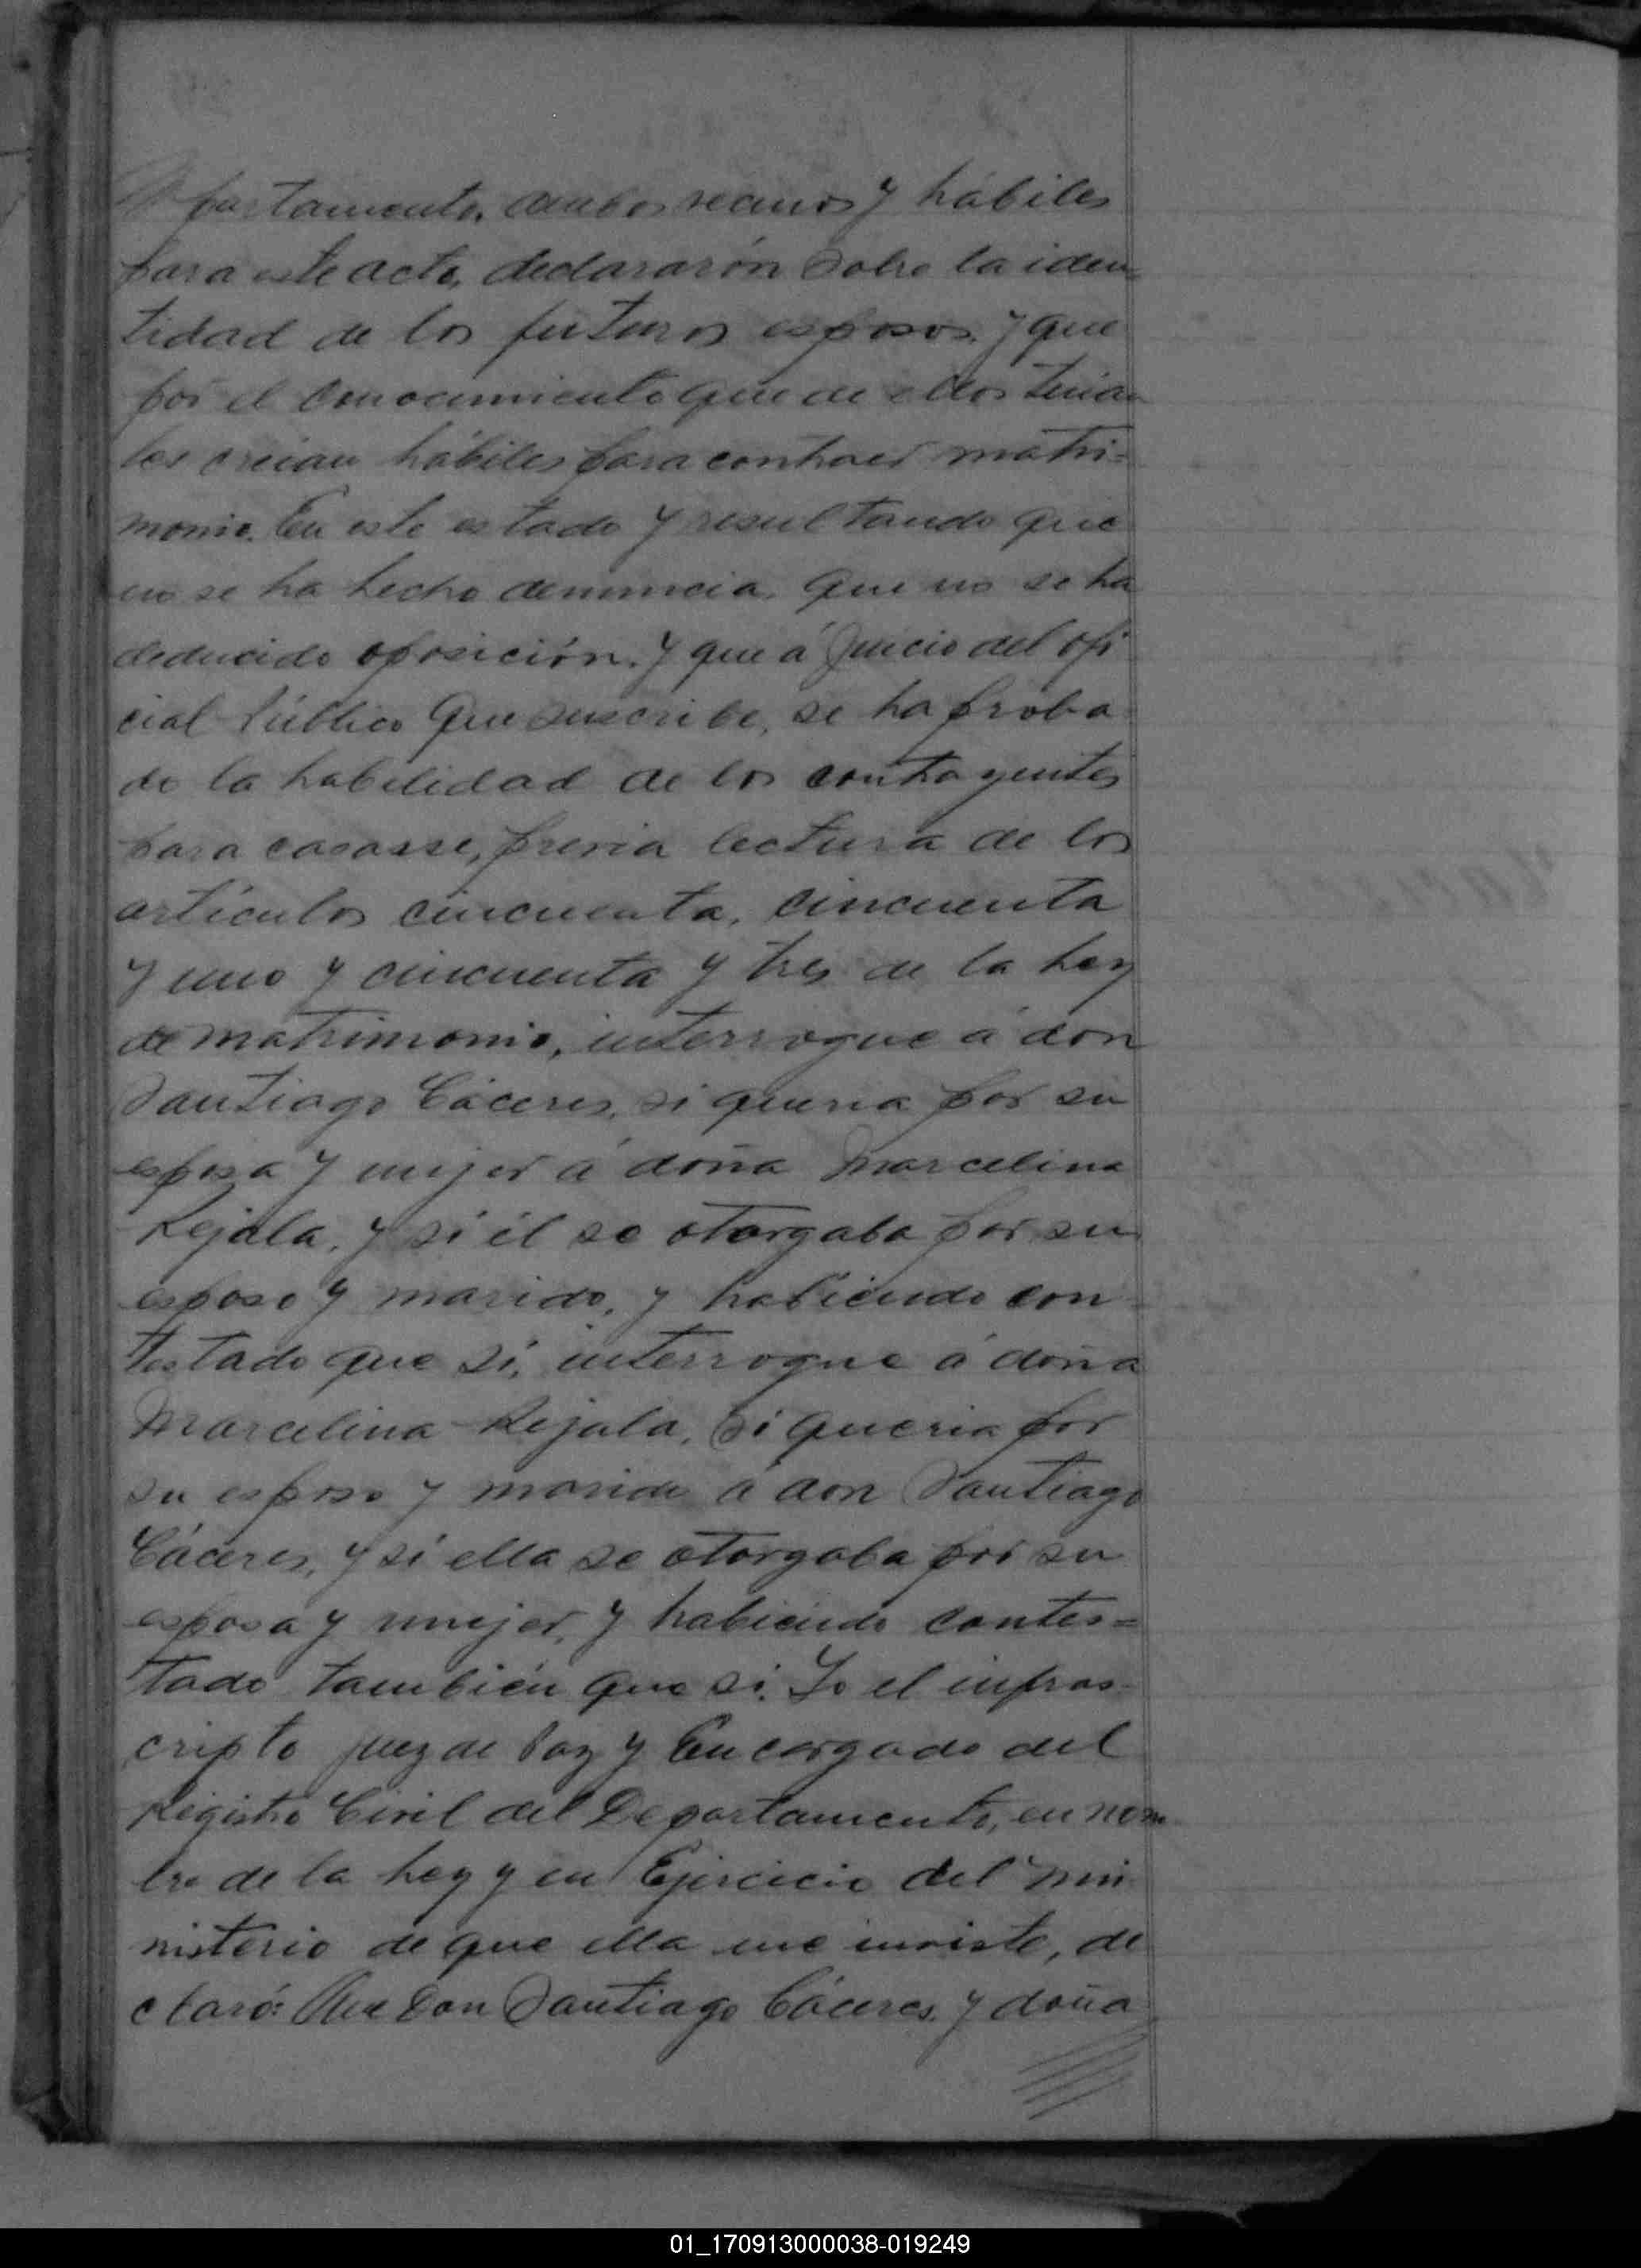 partamento, ambos vecinos y hábiles
para este acto, declararón sobre la iden=
tidad de los futuros esposos, y que
por el conocimiento que de ellos tenian
los creian hábiles para contraer matri=
monio. En este estado y resultando que
no se ha hecho denuncia, que no se ha
deducido oposición, y que á juicio del ofi
cial Público que suscribe, se ha proba
do la habilidad de los contrayentes
para casasse, previa lectura de los
artículos cincuenta, cincuenta
y uno y cincuenta y tres de la Ley
de matrimonio, interrogue á don
Santiago Cáceres, si queria por su
esposa y mujer á doña Marcelina
Rejala, y si él se otorgaba por su
esposo y marido, y habiendo con=
testado que sí, interrogue á doña
Marcelina Rejala, si queria por
su esposo y marido á don Santiago
Cáceres, y si ella se otorgaba por su
esposa y mujer, y habiendo contes=
tado también que si. Yo el infras-
cripto juez de Paz y Encargado del
Registro Civil del Departamento, en nom
bre de la Ley y en Ejercicio del mi
nisterio de que ella me inviste, de
claró: Que Don Santiago Cáceres y doña
01_170913000038-019249